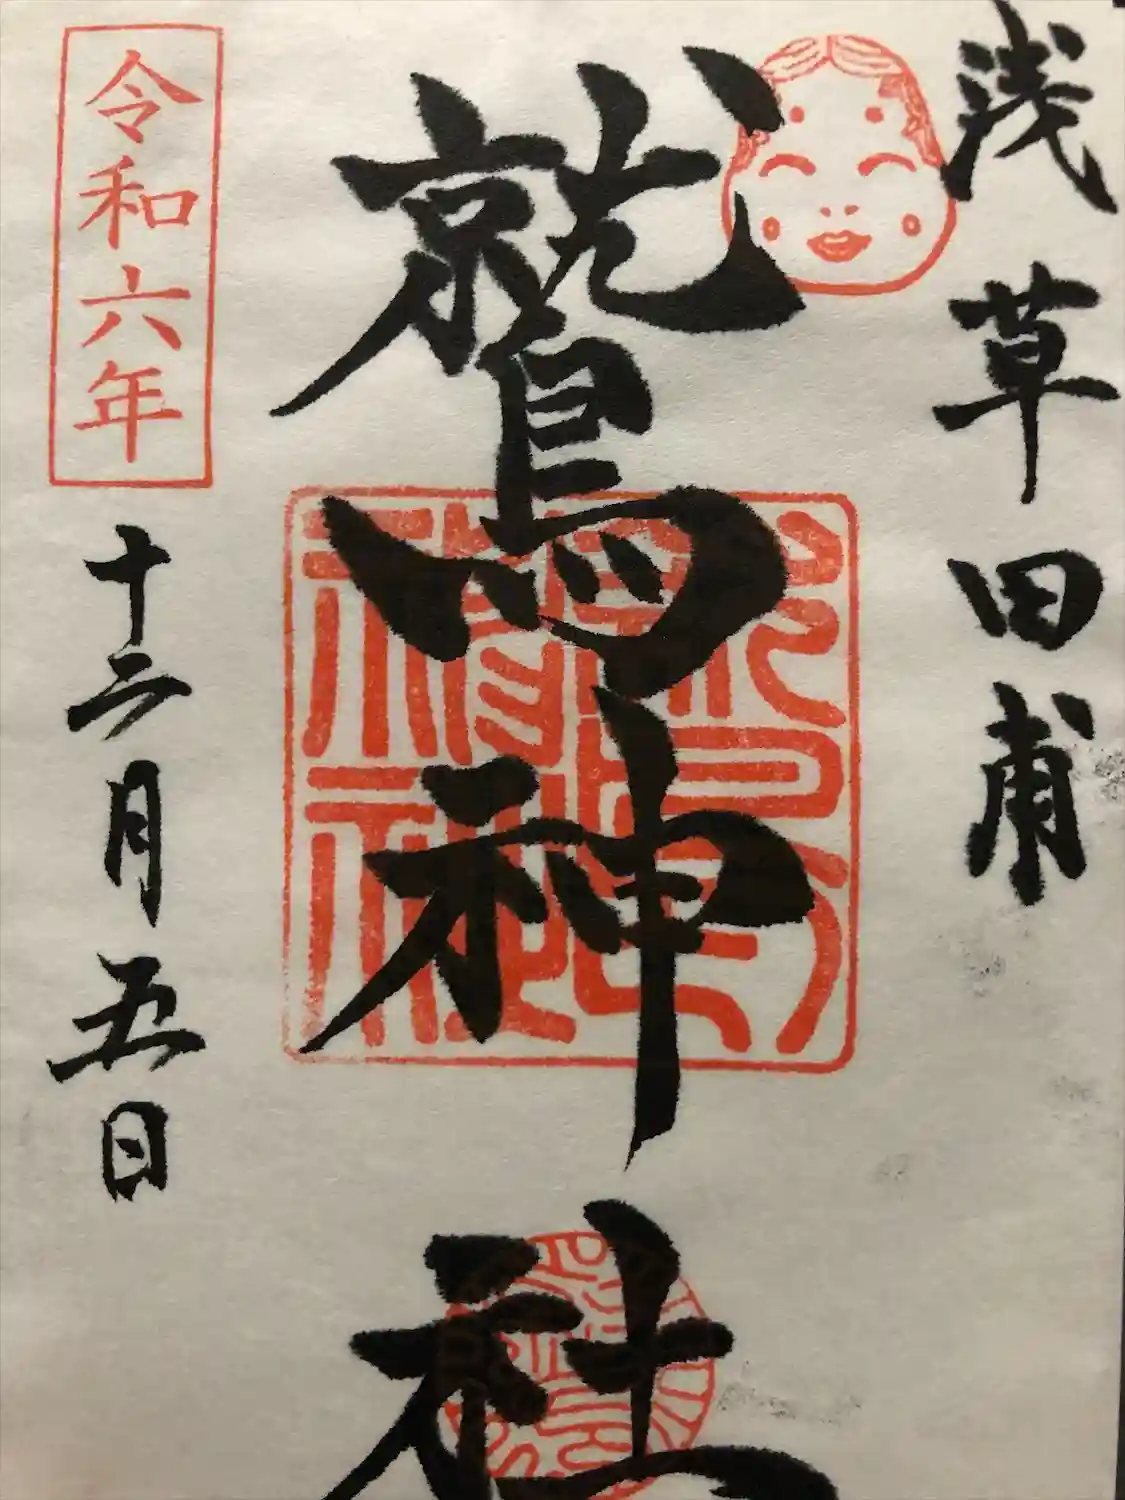 浅草田甫
鷲神社
令和六年
十二月五日